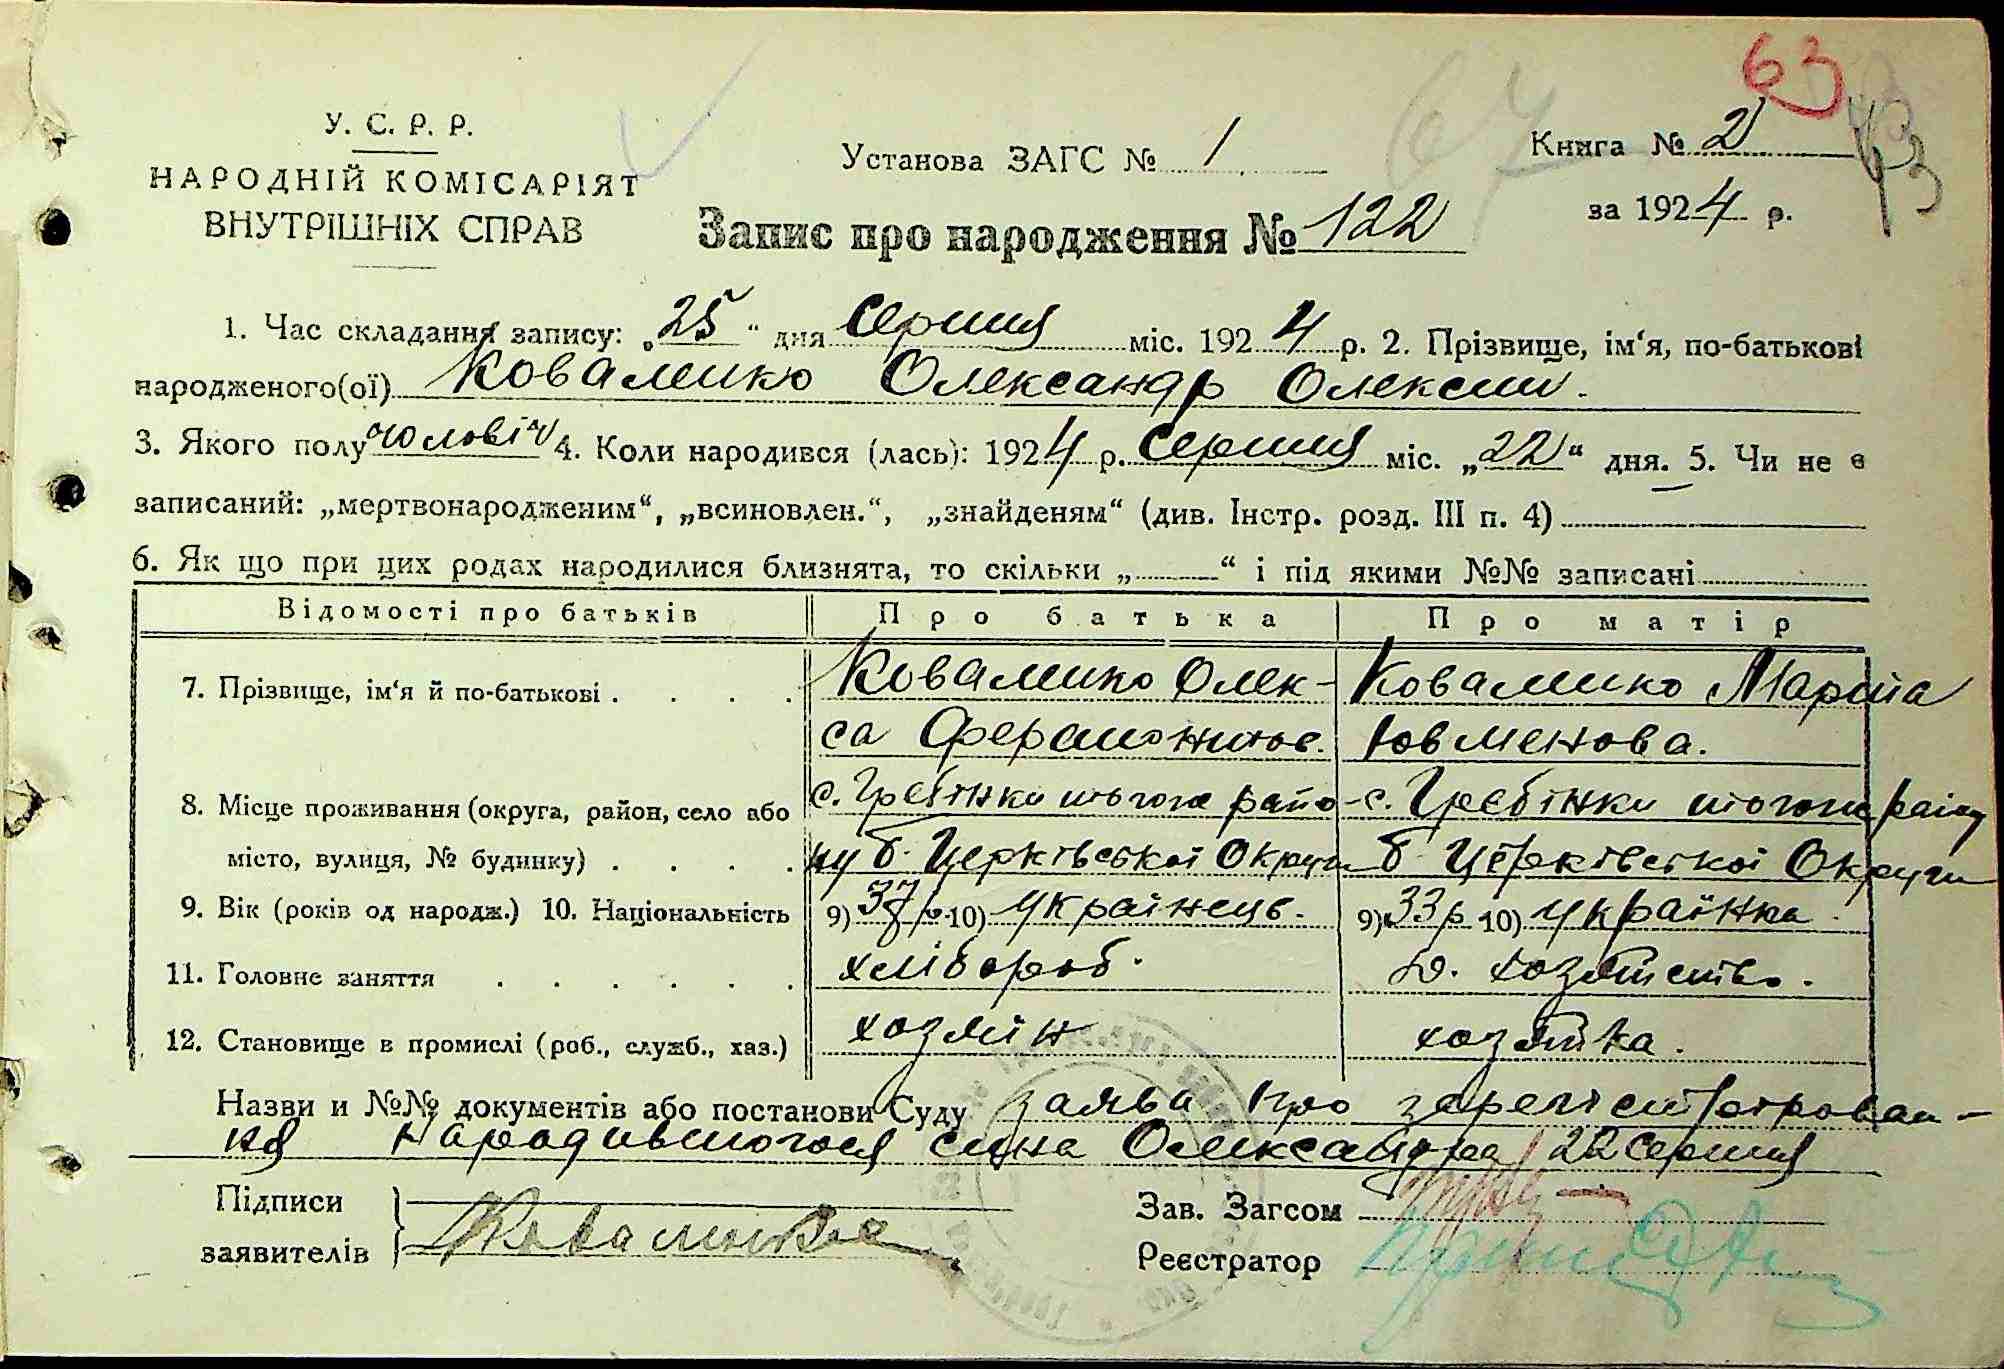 63
67
73
У. С. Р. Р.
НАРОДНІЙ КОМІСАРІЯТ
ВНУТРІШНІХ СПРАВ
Установа ЗАГС № 1
Книга № 2
за 1924 р.
Запис про народження № 122
1. Час складання запису: „25“ дня серпня міс. 1924 р. 2. Прізвище, ім‘я, по-батькові
народженого(ої) Коваленко Олександр Олексии.
3. Якого полу чоловіч 4. Коли народився (лась): 1924 р. серпня міс. „22“ дня. 5. Чи не є
записаний: „мертвонародженим“, „всиновлен.“, „знайденям“ (див. Інстр. розд. III п. 4)
6. Як що при цих родах народилися близнята, то скільки „ “ і під якими №№ записані
Відомості про батьків Про батька Про матір
7. Прізвище, ім‘я й по-батькові . . . . Коваленко Олек- Коваленко Марія
са
8. Місце проживання (округа, район, село або с. Гребінки цього райо- с. Гребінки цього райну
місто, вулиця, № будинку) . . . . ну б. Церківської Округи б. Церківської Округи
9. Вік (років од народж.) 10. Національність 9) 37 р. 10) Українець. 9) 33 р 10) Українка.
11. Головне заняття . . . . . . хлібороб. д. хозяйство.
12. Становище в промислі (роб., служб., хаз.) хозяїн хозяйка.
Назви и №№ документів або постанови Суду заява про зарегістрірован-
ня народившогося сина Олександра 22 серпня
Підписи
заявителів Коваленко
Зав. Загсом
Реєстратор